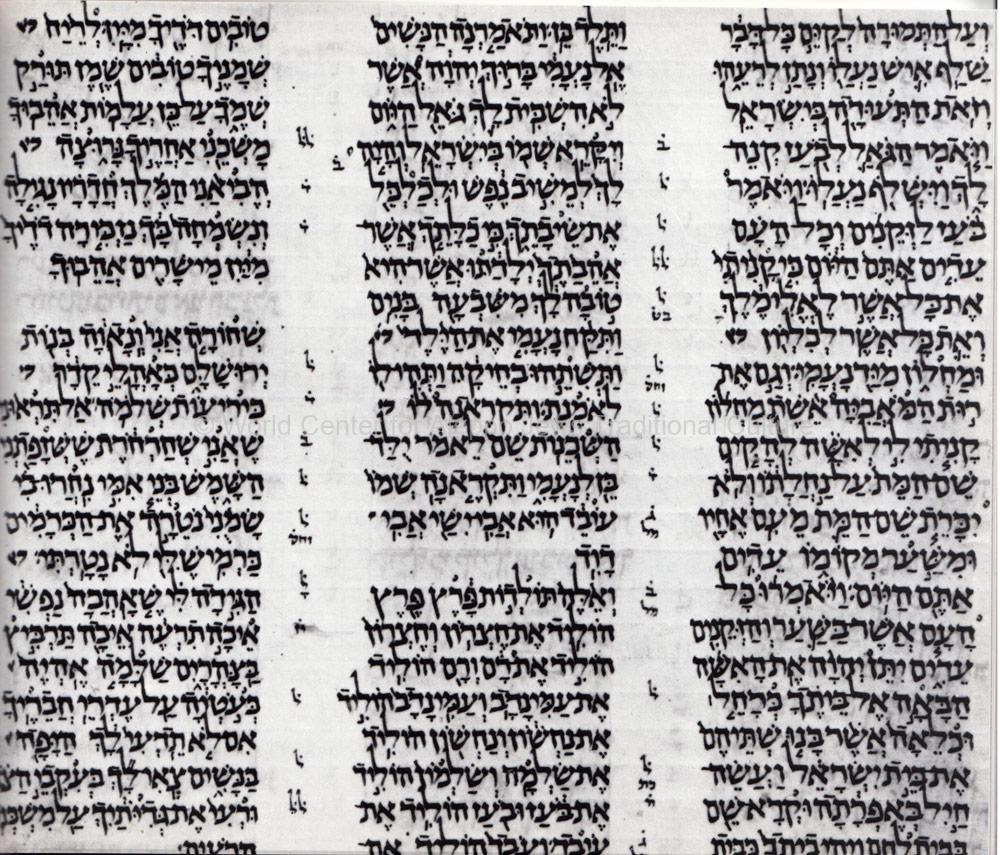 ועל התמורה לקים כל דבר
שלף איש נעלו ונתן לרעהו
וזאת התעודה בישראל
ויאמר הגאל לבעז קנה
לך וישלף נעלו ויאמר
בעז לזקנים וכל העם
עדים אתם היום כי קניתי
את כל אשר לאלימלך
ואת כל אשר לכליון
ומחלון מיד נעמי וגם את
רות המאביה אשת מחלון
קניתי לי לאשה להקים
שם המת על נחלתו ולא
יכרת שם המת מעם אחיו
ומשער מקומו עדים
אתם היום ויאמרו כל
העם אשר בשער והזקנים
עדים יתן יהוה את האשה
הבאה אל ביתך כרחל
וכלאה אשר בנו שתיהם
את בית ישראל ועשה
חיל באפרתה וקרא שם
בבית לחם ויהי ביתך כבית
ותלך בן ותאמרנה הנשים
אל נעמי ברוך יהוה אשר
לא השבית לך גאל היום
ויקרא שמו בישראל והיה
לך למשיב נפש ולכלכל
את שיבתך כי כלתך אשר
אהבתך ילדתו אשר היא
טובה לך משבעה בנים
ותקח נעמי את הילד
ותשתהו בחיקה ותהי לו
לאמנת ותקראנה לו
השכנות שם לאמר ילד
בן לנעמי ותקראנה שמו
עובד הוא אבי ישי אבי
דוד
ואלה תולדות פרץ פרץ
הוליד את חצרון וחצרון
הוליד את רם ורם הוליד
את עמינדב ועמינדב הוליד
את נחשון ונחשון הוליד
את שלמה ושלמון הוליד
את בעז ובעז הוליד את
עובד ועבד הוליד את
טובים דדיך מיין לריח
שמניך טובים שמן תורק
שמך על כן עלמות אהבוך
משכני אחריך נרוצה
הביאני המלך חדריו נגילה
ונשמחה בך נזכירה דדיך
מיין מישרים אהבוך
שחורה אני ונאוה בנות
ירושלם כאהלי קדר
כיריעות שלמה אל תראוני
שאני שחרחרת ששזפתני
השמש בני אמי נחרו בי
שמני נטרה את הכרמים
כרמי שלי לא נטרתי
הגידה לי שאהבה נפשי
איכה תרעה איכה תרביץ
בצהרים שלמה אהיה
כעטיה על עדרי חבריך
אם לא תדעי לך היפה
בנשים צאי לך בעקבי הצאן
ורעי את גדיתיך על משכנות
הרעים
© World Center for Aleppo Jews Traditional Culture